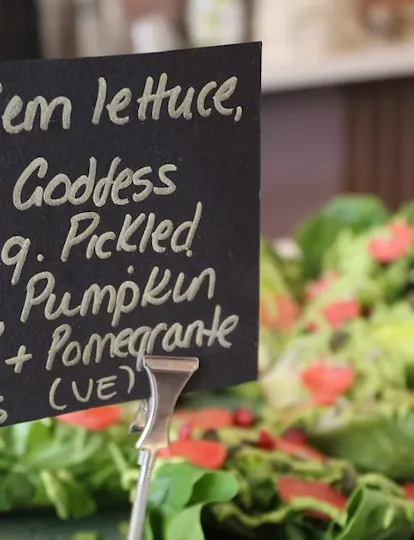 em lettuce,
Goddess
g. Pickled
Pumpkin
+ Pomegrante
s (VE)